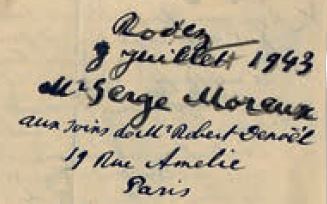 Rodez
9 juillet 1943
Mr Serge Moreux
aux soins de Mr Robert Denoël
19 Rue Amelie
Paris